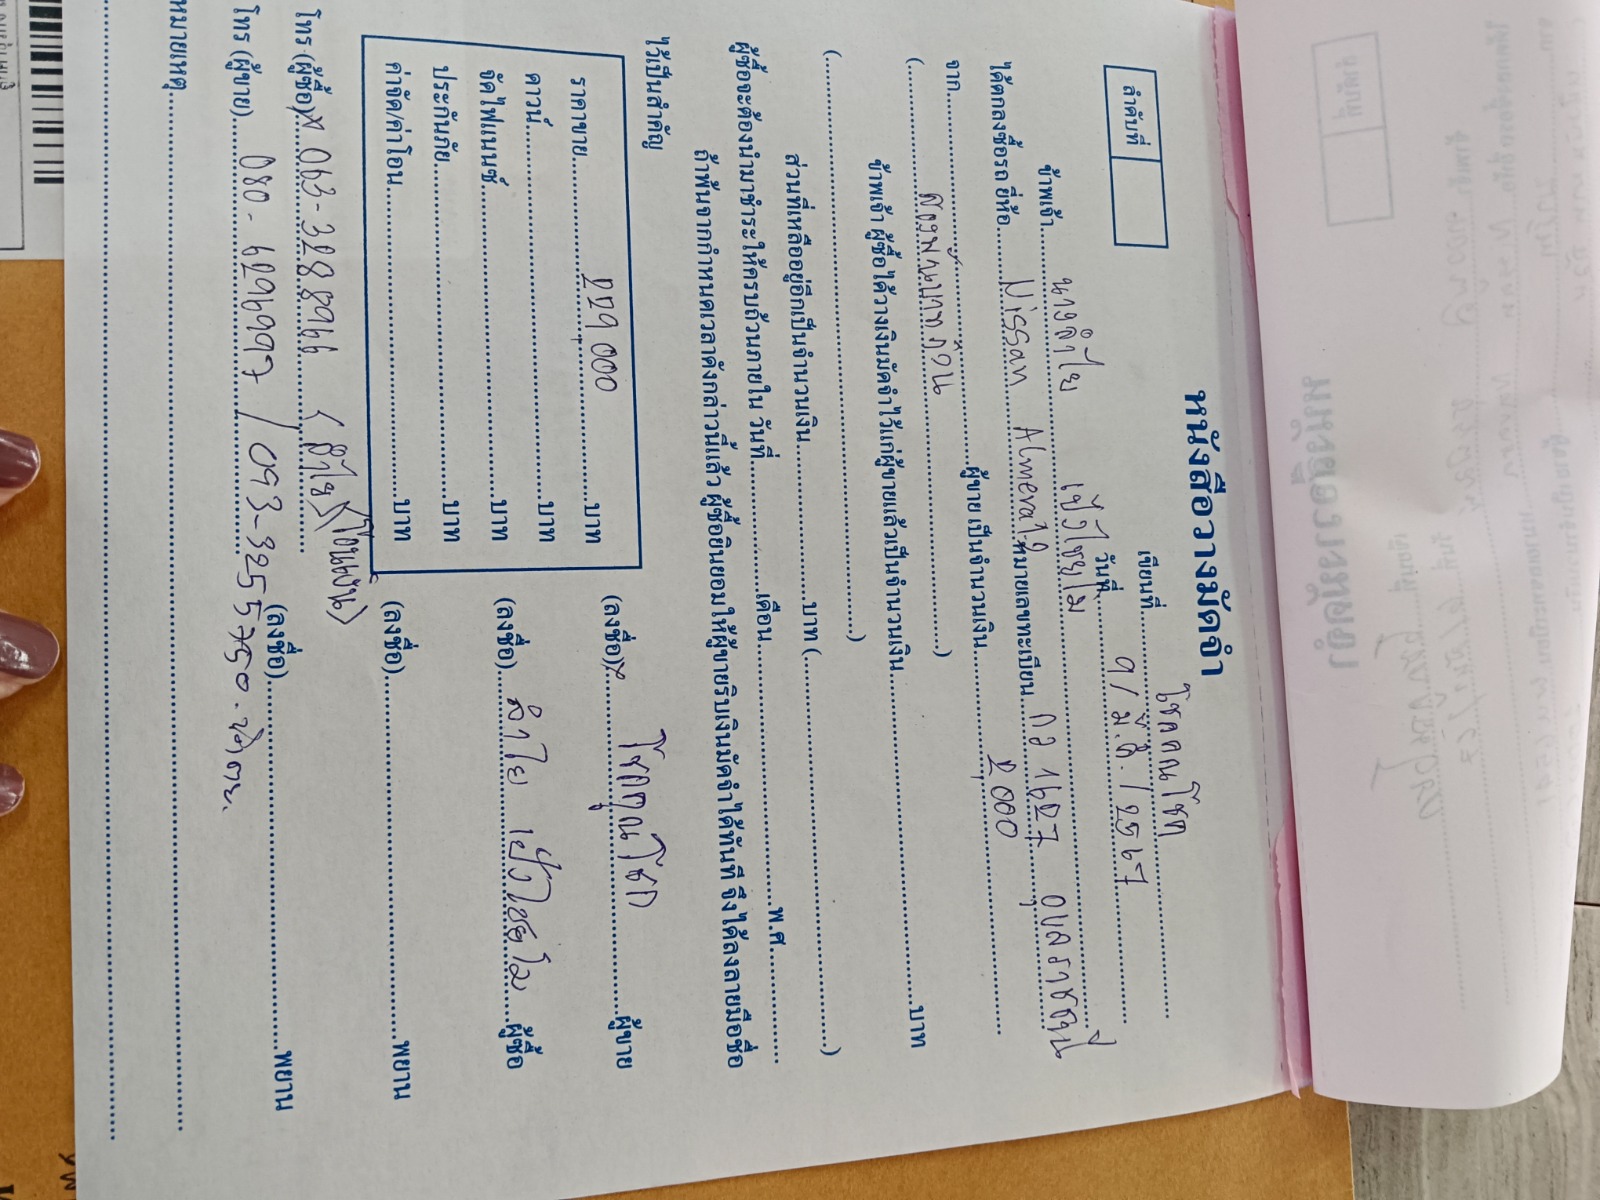 หนังสือวางมัดจำ
ลำดับที่
เขียนที่ โชคคูณโชค
วันที่ ๑ / มี.ค. / 2567
ข้าพเจ้า นางลำไย
ได้ตกลงซื้อรถ ยี่ห้อ Nissan Almera หมายเลขทะเบียน กอ 1627 อุบลราชธานี
จาก ผู้ขาย เป็นจำนวนเงิน ๒,000
( สองพันบาทถ้วน )
ข้าพเจ้า ผู้ซื้อ ได้วางเงินมัดจำไว้แก่ผู้ขายแล้วเป็นจำนวนเงิน บาท
( )
ส่วนที่เหลืออยู่อีกเป็นจำนวนเงิน บาท ( )
ผู้ซื้อจะต้องนำมาชำระให้ครบถ้วนภายใน วันที่ เดือน พ.ศ.
ถ้าพ้นจากกำหนดเวลาดังกล่าวนี้แล้ว ผู้ซื้อยินยอมให้ผู้ขายริบเงินมัดจำได้ทันที จึงได้ลงลายมือชื่อ
ไว้เป็นสำคัญ
ราคาขาย ๒๖๑,000 บาท
ดาวน์ บาท
จัดไฟแนนซ์ บาท
ประกันภัย บาท
ค่าจัด/ค่าโอน บาท
(ลงชื่อ)x โชคคูณโชค ผู้ขาย
(ลงชื่อ) ลำไย ผู้ซื้อ
(ลงชื่อ) พยาน
(ลงชื่อ) พยาน
โทร (ผู้ซื้อ)x 063-3288966
โทร (ผู้ขาย) 080-6296997 / 093-3255750
หมายเหตุ